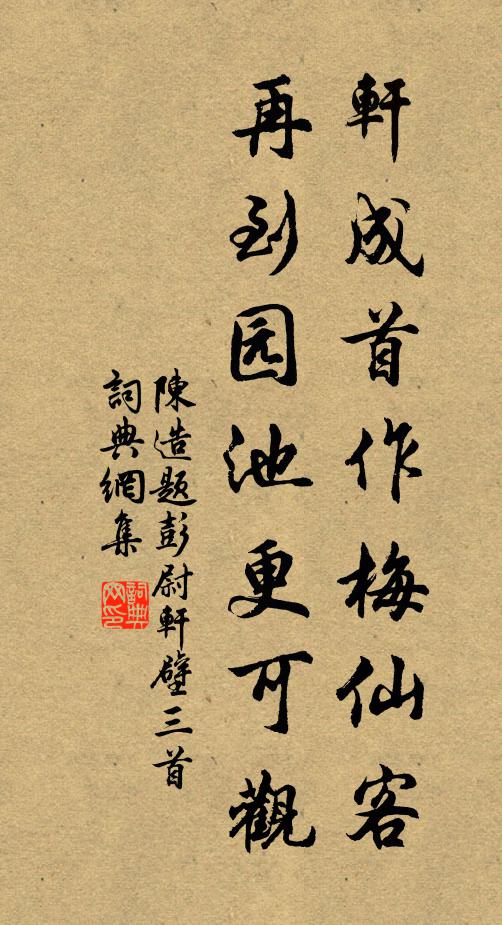 軒成首作梅仙客
再到园池更可觀
陳造題彭尉軒壁三首
詞典網集
詞典
网印